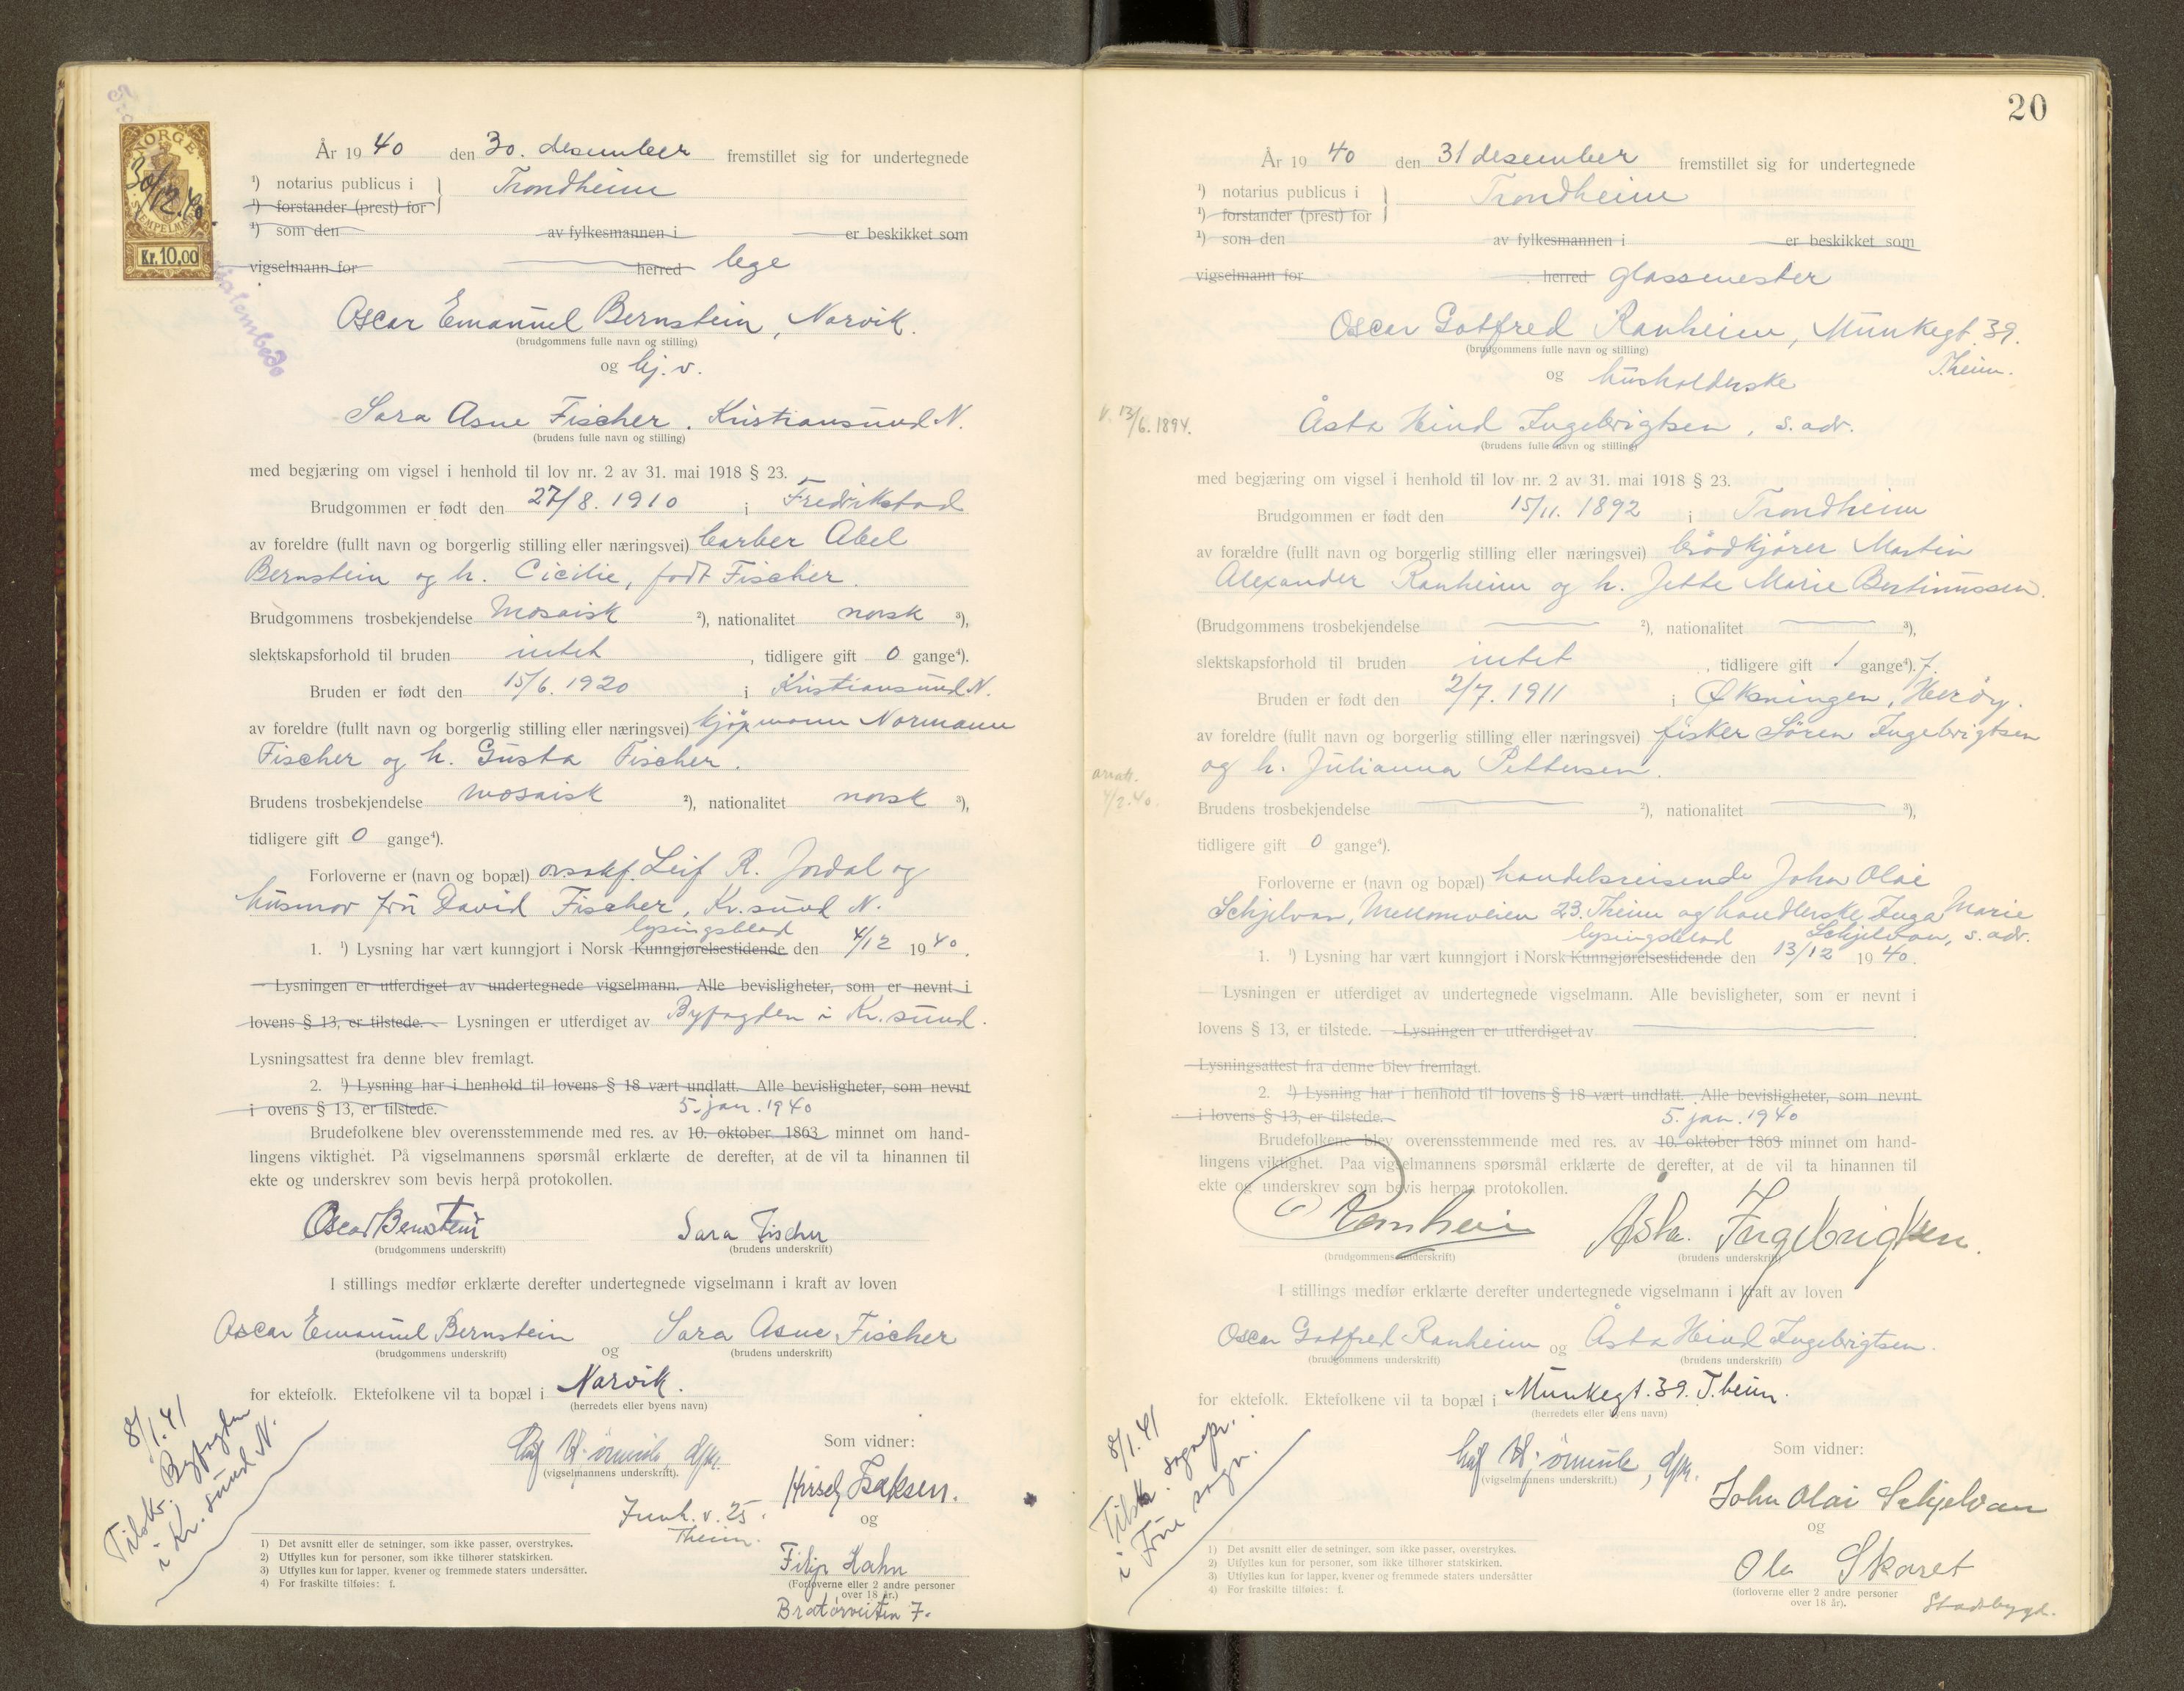 NORGE
30/12.40.
STEMPELM
Kr. 10,00
År 1940 den 30. desember fremstillet sig for undertegnede
¹) notarius publicus i } Trondheim
¹) forstander (prest) for
¹) som den av fylkesmannen i er beskikket som
vigselmann for herred lege
Oscar Emanuel Bernstein, Narvik.
(brudgommens fulle navn og stilling)
og hj. v.
Sara Asne Fischer. Kristiansund N.
(brudens fulle navn og stilling)
med begjæring om vigsel i henhold til lov nr. 2 av 31. mai 1918 § 23.
Brudgommen er født den 27/8. 1910 i Fredrikstad
av foreldre (fullt navn og borgerlig stilling eller næringsvei) barber Abel
Bernstein og h. Cicilie, født Fischer.
Brudgommens trosbekjendelse Mosaisk ²), nationalitet norsk ³),
slektskapsforhold til bruden intet , tidligere gift 0 gange⁴).
Bruden er født den 15/6. 1920 i Kristiansund N.
av foreldre (fullt navn og borgerlig stilling eller næringsvei) kjøpmann Normann
Fischer og h. Gusta Fischer.
Brudens trosbekjendelse mosaisk ²), nationalitet norsk ³),
tidligere gift 0 gange⁴).
Forloverne er (navn og bopæl) orsakf. Leif R. Jordal og
husmor fru David Fischer, Kr.sund N.
lysingsblad
1. ¹) Lysning har vært kunngjort i Norsk Kunngjørelsestidende den 4/12 1940.
Lysningen er utferdiget av undertegnede vigselmann. Alle bevisligheter, som er nevnt i
lovens § 13, er tilstede. Lysningen er utferdiget av Byfogden i Kr.sund.
Lysningsattest fra denne blev fremlagt.
2. ¹) Lysning har i henhold til lovens § 18 vært undlatt. Alle bevisligheter, som nevnt
i ovens § 13, er tilstede. 5. jan. 1940
Brudefolkene blev overensstemmende med res. av 10. oktober 1863 minnet om hand-
lingens viktighet. På vigselmannens spørsmål erklærte de derefter, at de vil ta hinannen til
ekte og underskrev som bevis herpå protokollen.
Oscar Bernstein Sara Fischer
(brudgommens underskrift) (brudens underskrift)
I stillings medfør erklærte derefter undertegnede vigselmann i kraft av loven
Oscar Emanuel Bernstein og Sara Asne Fischer
(brudgommens underskrift) (brudens underskrift)
for ektefolk. Ektefolkene vil ta bopæl i Narvik.
(herredets eller byens navn)
(vigselmannens underskrift).
Som vidner:
Hirsch Isaksen.
Junk. v. 25.
Theim.
og
Filip Kahn
(Forloverne eller 2 andre personer
over 18 år.)
Bratørveiten 7.
8/1.41
Tilskr. Byfogden
i Kr. sund N.
1) Det avsnitt eller de setninger, som ikke passer, overstrykes.
2) Utfylles kun for personer, som ikke tilhører statskirken.
3) Utfylles kun for lapper, kvener og fremmede staters undersåtter.
4) For fraskilte tilføies: f.
20
År 1940 den 31 desember fremstillet sig for undertegnede
¹) notarius publicus i } Trondheim
¹) forstander (prest) for
¹) som den av fylkesmannen i er beskikket som
vigselmann for herred glassmester
Oscar Gotfred Ranheim, Munkegt. 39.
(brudgommens fulle navn og stilling) T.heim.
og husholderske
v. 13/6. 1894.
Åsta Hind Ingebrigtsen, s. adr.
(brudens fulle navn og stilling)
med begjæring om vigsel i henhold til lov nr. 2 av 31. mai 1918 § 23.
Brudgommen er født den 15/11. 1892 i Trondheim
av forældre (fullt navn og borgerlig stilling eller næringsvei) brødkjører Martin
Alexander Ranheim og h. Jette Marie Bertinussen.
(Brudgommens trosbekjendelse ²), nationalitet ³),
slektskapsforhold til bruden intet , tidligere gift 1 gange⁴). f.
Bruden er født den 2/7. 1911 i Øksningen, Herøy.
av foreldre (fullt navn og borgerlig stilling eller næringsvei) fisker Søren Ingebrigtsen
og h. Julianna Pettersen.
4/2.40.
Brudens trosbekjendelse ²), nationalitet ³),
tidligere gift 0 gange⁴).
Forloverne er (navn og bopæl) handelsreisende John Olai
Schjelvan, Mellomveien 23. Theim og handlerske Inga Marie
lysingsblad Schjelvan, s. adr.
1. ¹) Lysning har vært kunngjort i Norsk Kunngjørelsestidende den 13/12 1940.
Lysningen er utferdiget av undertegnede vigselmann. Alle bevisligheter, som er nevnt i
lovens § 13, er tilstede. Lysningen er utferdiget av
Lysningsattest fra denne blev fremlagt.
2. ¹) Lysning har i henhold til lovens § 18 vært undlatt. Alle bevisligheter, som nevnt
i lovens § 13, er tilstede. 5. jan. 1940
Brudefolkene blev overensstemmende med res. av 10. oktober 1863 minnet om hand-
lingens viktighet. Paa vigselmannens spørsmål erklærte de derefter, at de vil ta hinannen til
ekte og underskrev som bevis herpaa protokollen.
O Ranheim Åsta. Ingebrigtsen.
(brudgommens underskrift) (brudens underskrift)
I stillings medfør erklærte derefter undertegnede vigselmann i kraft av loven
Oscar Gotfred Ranheim og Åsta Hind Ingebrigtsen.
(brudgommens underskrift) (brudens underskrift)
for ektefolk. Ektefolkene vil ta bopæl i Munkegt. 39. T.heim.
(herredets eller byens navn)
(vigselmannens underskrift.)
Som vidner:
John Olai Schjelvan
og
Ola Skaret
(forloverne eller 2 andre personer
over 18 år). Stadsbygd.
8/1.41
Tilskr. sognepr.
i Frue sogn.
1) Det avsnitt eller de setninger, som ikke passer, overstrykes.
2) Utfylles kun for personer, som ikke tilhører statskirken.
3) Utfylles kun for lapper, kvener og fremmede staters undersåtter
4) For fraskilte tilføies: f.